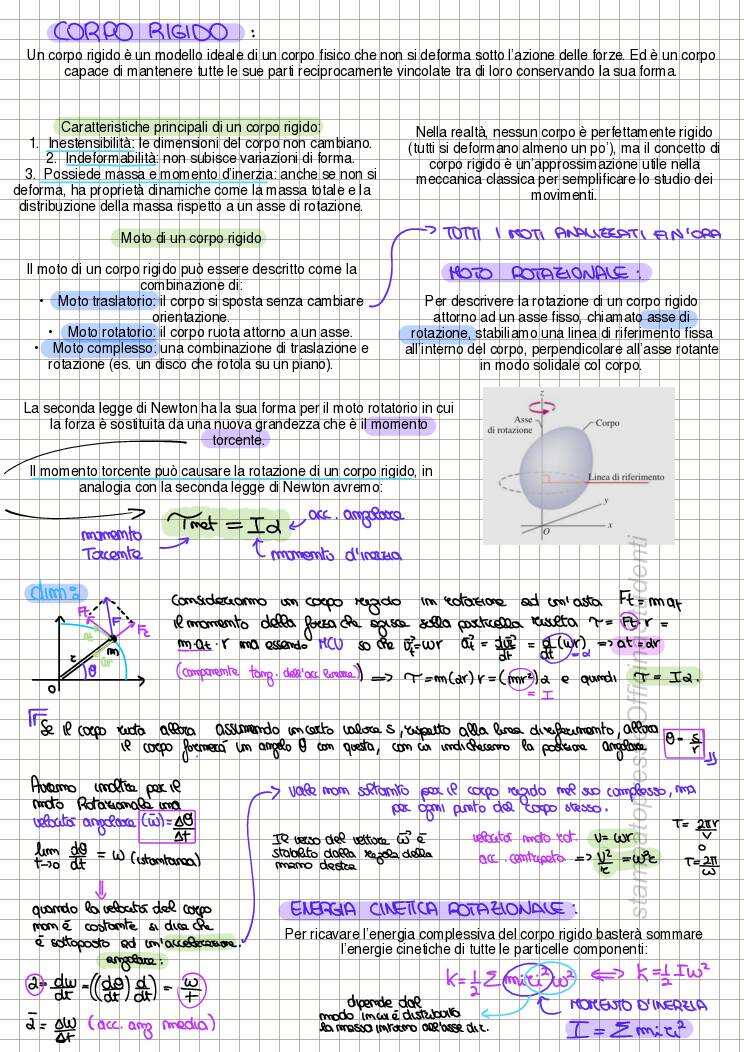 CORPO RIGIDO :
Un corpo rigido è un modello ideale di un corpo fisico che non si deforma sotto l'azione delle forze. Ed è un corpo
capace di mantenere tutte le sue parti reciprocamente vincolate tra di loro conservando la sua forma.
Caratteristiche principali di un corpo rigido:
1. Inestensibilità: le dimensioni del corpo non cambiano.
2. Indeformabilità: non subisce variazioni di forma.
3. Possiede massa e momento d'inerzia: anche se non si
deforma, ha proprietà dinamiche come la massa totale e la
distribuzione della massa rispetto a un asse di rotazione.
Nella realtà, nessun corpo è perfettamente rigido
(tutti si deformano almeno un po'), ma il concetto di
corpo rigido è un'approssimazione utile nella
meccanica classica per semplificare lo studio dei
movimenti.
Moto di un corpo rigido
Il moto di un corpo rigido può essere descritto come la
combinazione di:
• Moto traslatorio: il corpo si sposta senza cambiare
orientazione.
• Moto rotatorio: il corpo ruota attorno a un asse.
• Moto complesso: una combinazione di traslazione e
rotazione (es. un disco che rotola su un piano).
→ TUTTI I MOTI ANALIZZATI FIN'ORA
MOTO ROTAZIONALE :
Per descrivere la rotazione di un corpo rigido
attorno ad un asse fisso, chiamato asse di
rotazione, stabiliamo una linea di riferimento fissa
all'interno del corpo, perpendicolare all'asse rotante
in modo solidale col corpo.
La seconda legge di Newton ha la sua forma per il moto rotatorio in cui
la forza è sostituita da una nuova grandezza che è il momento
torcente.
Il momento torcente può causare la rotazione di un corpo rigido, in
analogia con la seconda legge di Newton avremo:
z
Asse
di rotazione
Corpo
Linea di riferimento
y
x
O
τnet = Iα
acc. angolare
momento
Torcente
momento d'inerzia
dim:
Ft
F
Fr
at
m
r
θ
O
Consideriamo un corpo rigido in rotazione ed un'asta Ft = m at
il momento della forza che agisce sulla particella risulta τ = Ft · r =
m·at · r ma essendo MCU so che vt = ωr at = dv/dt = d/dt (ωr) => at = αr
= α
(componente tang. dell'acc lineare) => τ = m(αr) r = (mr²) α e quindi τ = Iα.
= I
Se il corpo ruota allora assumendo un certo valore s, rispetto alla linea di riferimento, allora
il corpo formerà un angolo θ con questa, con cui indicheremo la posizione angolare θ = s/r
Avremo inoltre per il
moto Rotazionale una
velocità angolare (ω̄) = Δθ/Δt
lim t→0 dθ/dt = ω (istantanea)
quando la velocità del corpo
non è costante si dice che
è sottoposto ad un'accelerazione
angolare:
α = dω/dt = ((dθ/dt) d/dt) = ω/t
ᾱ = Δω/Δt (acc. ang media)
→ vale non soltanto per il corpo rigido nel suo complesso, ma
per ogni punto del corpo stesso.
Il verso del vettore ω⃗ è
stabilito dalla regola della
mano destra
velocità moto rot. v = ωr
acc. centripeta => v²/r = ω²r
T = 2πr/v
o
T = 2π/ω
ENERGIA CINETICA ROTAZIONALE :
Per ricavare l'energia complessiva del corpo rigido basterà sommare
l'energie cinetiche di tutte le particelle componenti:
K = 1/2 Σ mi ri² ω² <=> K = 1/2 Iω²
dipende dal
modo in cui è distribuita
la massa intorno all'asse di r.
MOMENTO D'INERZIA
I = Σ mi ri²